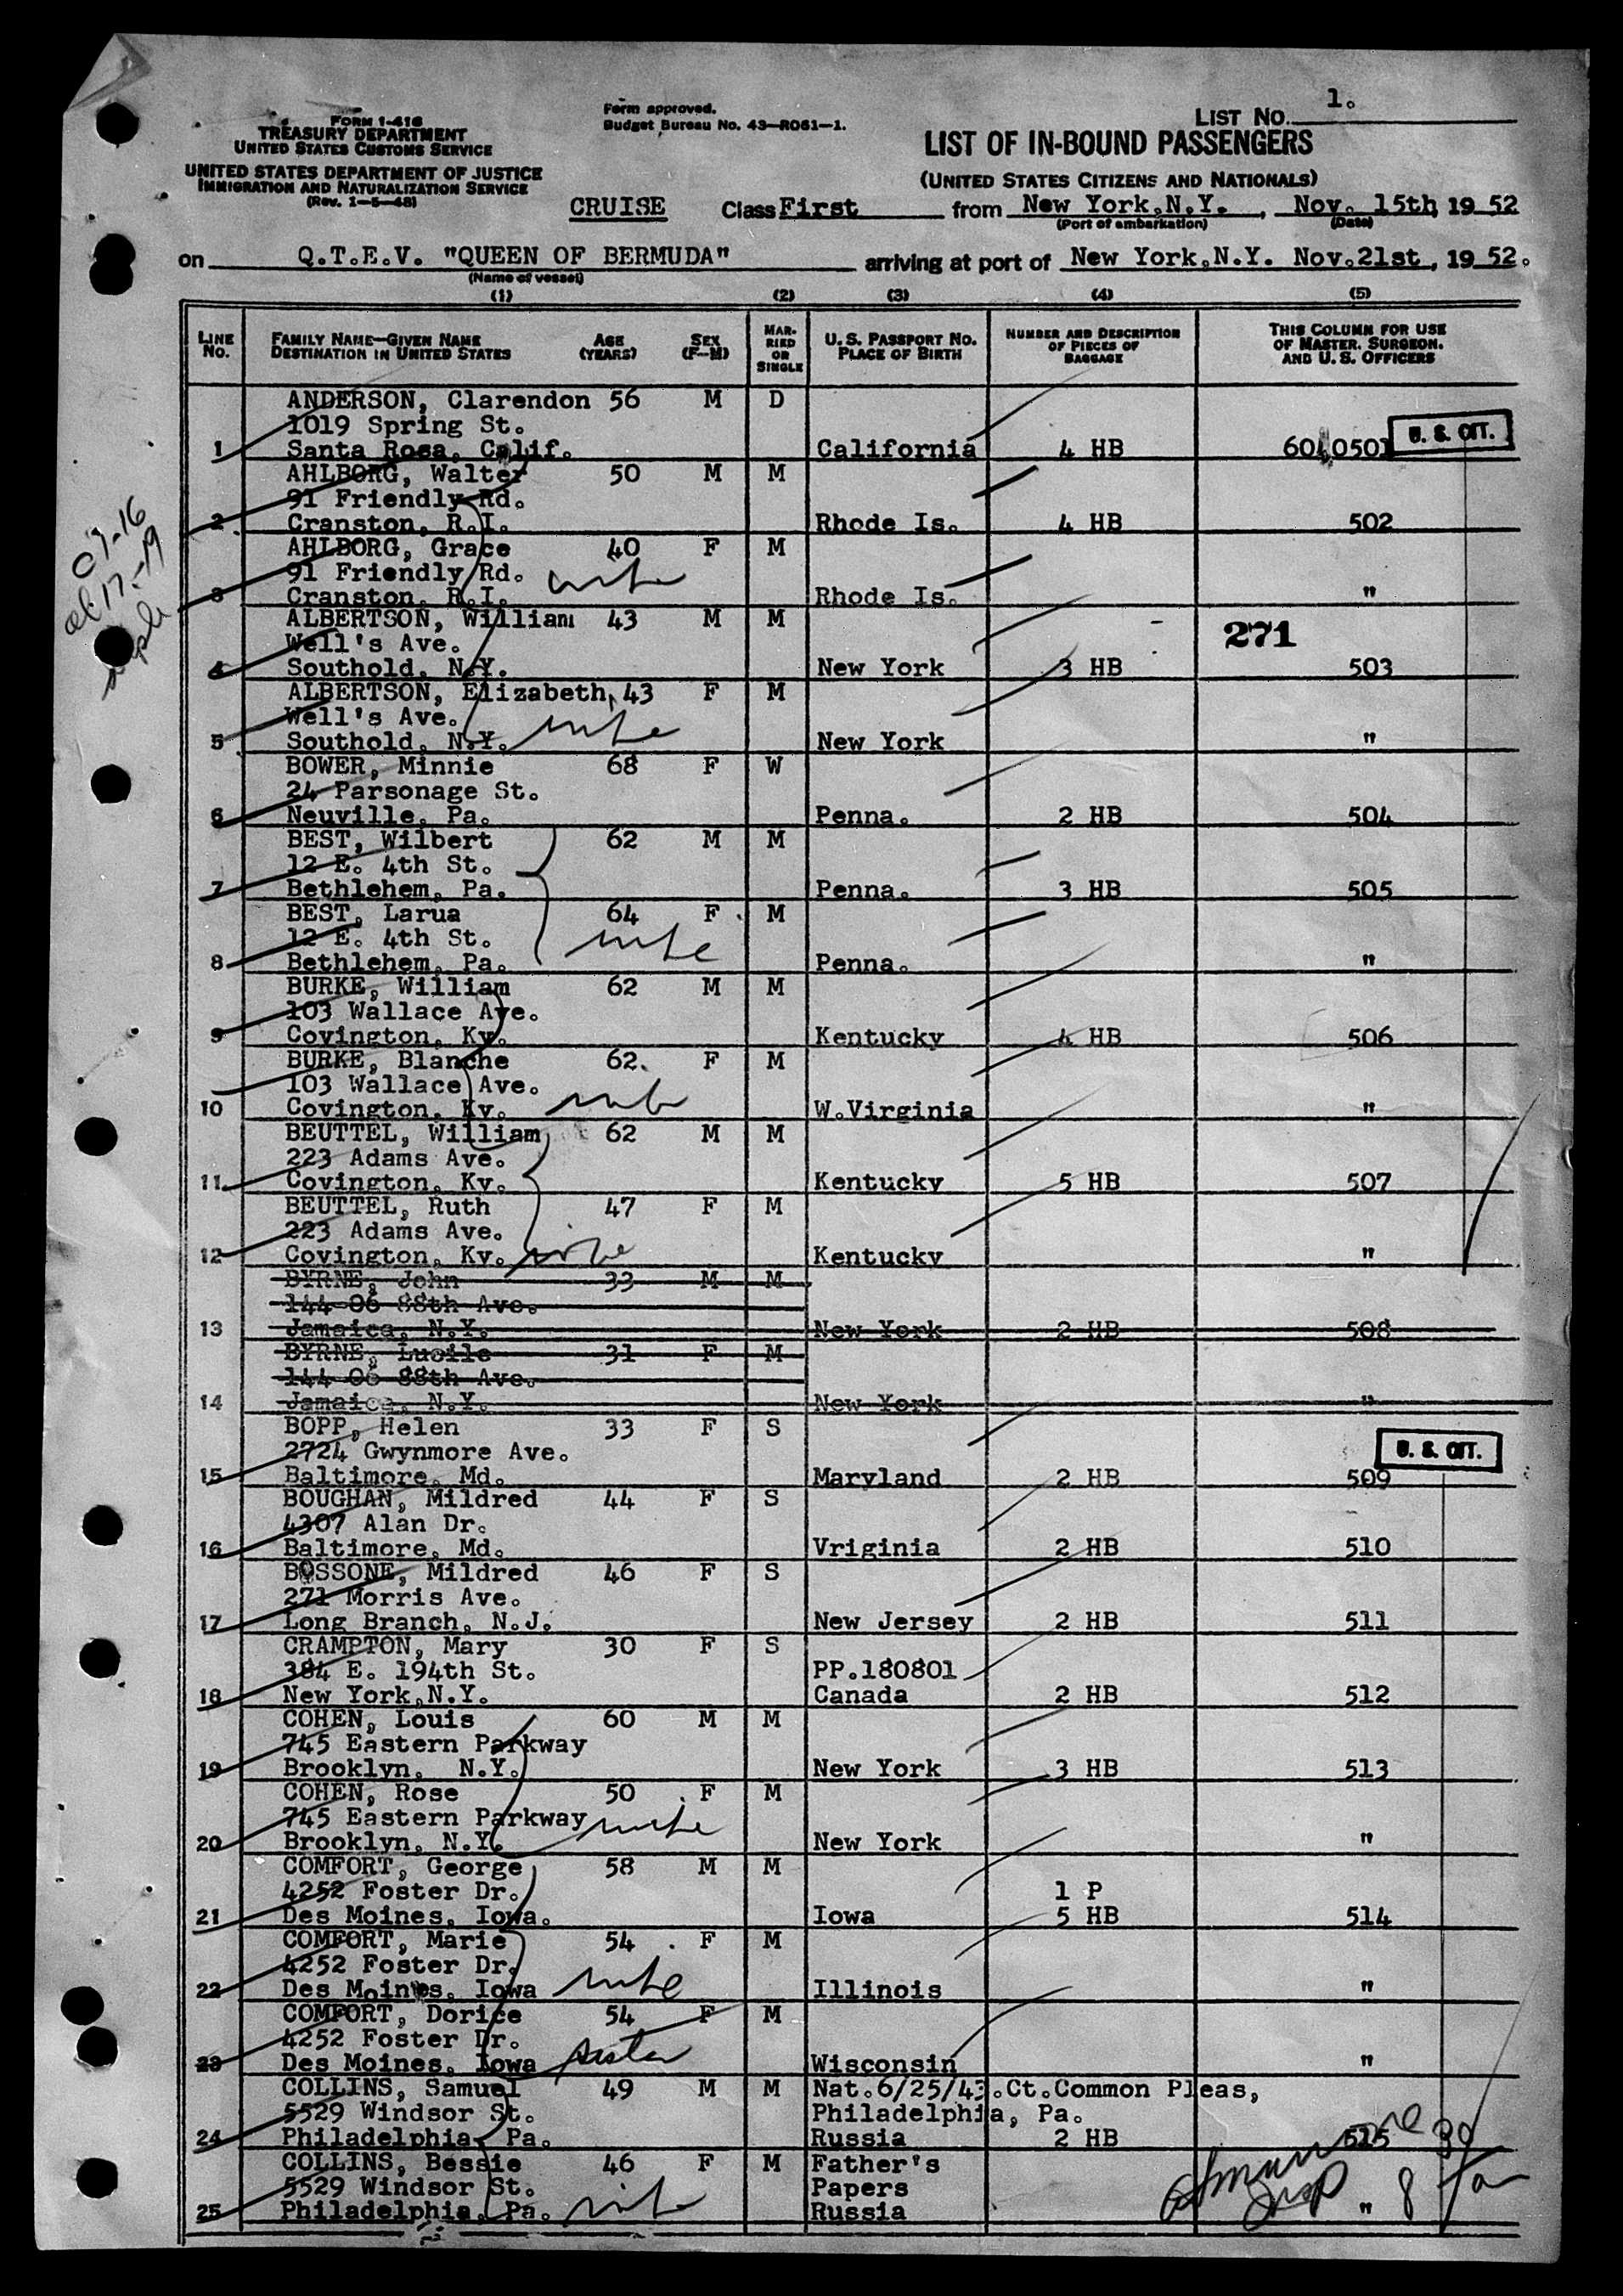 1.
LIST NO.
FORM I-416
TREASURY DEPARTMENT
UNITED STATES CUSTOMS SERVICE
UNITED STATES DEPARTMENT OF JUSTICE
IMMIGRATION AND NATURALIZATION SERVICE
(Rev. 1-5-48)
Form approved.
Budget Bureau No. 43-R061-1.
LIST OF IN-BOUND PASSENGERS
(UNITED STATES CITIZENS AND NATIONALS)
CRUISE Class First from New York,N.Y., Nov. 15th, 19 52
(Port of embarkation) (Date)
on Q.T.E.V. "QUEEN OF BERMUDA" arriving at port of New York,N.Y. Nov.21st, 19 52.
(Name of vessel)
(1) (2) (3) (4) (5)
LINE NO. FAMILY NAME—GIVEN NAME DESTINATION IN UNITED STATES AGE (YEARS) SEX (F-M) MARRIED OR SINGLE U. S. PASSPORT NO. PLACE OF BIRTH NUMBER AND DESCRIPTION OF PIECES OF BAGGAGE THIS COLUMN FOR USE OF MASTER, SURGEON, AND U. S. OFFICERS
ANDERSON, Clarendon 56 M D
1019 Spring St.
1 Santa Rosa, Calif. California 4 HB 6040501 U. S. CIT.
AHLBORG, Walter 50 M M
91 Friendly Rd.
2 Cranston, R.I. Rhode Is. 4 HB 502
AHLBORG, Grace 40 F M
91 Friendly Rd. wife
3 Cranston, R.I. Rhode Is. "
ALBERTSON, William 43 M M
Well's Ave. 271
4 Southold, N.Y. New York 3 HB 503
ALBERTSON, Elizabeth 43 F M
Well's Ave. wife
5 Southold, N.Y. New York "
BOWER, Minnie 68 F W
24 Parsonage St.
6 Neuville, Pa. Penna. 2 HB 504
BEST, Wilbert 62 M M
12 E. 4th St.
7 Bethlehem, Pa. Penna. 3 HB 505
BEST, Larua 64 F M
12 E. 4th St. wife
8 Bethlehem, Pa. Penna. "
BURKE, William 62 M M
103 Wallace Ave.
9 Covington, Ky. Kentucky 4 HB 506
BURKE, Blanche 62 F M
103 Wallace Ave.
10 Covington, Ky. wife W.Virginia "
BEUTTEL, William 62 M M
223 Adams Ave.
11 Covington, Ky. Kentucky 5 HB 507
BEUTTEL, Ruth 47 F M
223 Adams Ave.
12 Covington, Ky. wife Kentucky "
BYRNE, John 33 M M
144-06 88th Ave.
13 Jamaica, N.Y. New York 2 HB 508
BYRNE, Lucile 31 F M
144-06 88th Ave.
14 Jamaica, N.Y. New York "
BOPP, Helen 33 F S
2724 Gwynmore Ave. U. S. CIT.
15 Baltimore, Md. Maryland 2 HB 509
BOUGHAN, Mildred 44 F S
4307 Alan Dr.
16 Baltimore, Md. Vriginia 2 HB 510
BOSSONE, Mildred 46 F S
271 Morris Ave.
17 Long Branch, N.J. New Jersey 2 HB 511
CRAMPTON, Mary 30 F S
384 E. 194th St. PP.180801
18 New York,N.Y. Canada 2 HB 512
COHEN, Louis 60 M M
745 Eastern Parkway
19 Brooklyn, N.Y. New York 3 HB 513
COHEN, Rose 50 F M
745 Eastern Parkway wife
20 Brooklyn, N.Y. New York "
COMFORT, George 58 M M
4252 Foster Dr. 1 P
21 Des Moines, Iowa. Iowa 5 HB 514
COMFORT, Marie 54 F M
4252 Foster Dr.
22 Des Moines, Iowa wife Illinois "
COMFORT, Dorice 54 F M
4252 Foster Dr.
23 Des Moines, Iowa sister Wisconsin "
COLLINS, Samuel 49 M M Nat.6/25/43.Ct.Common Pleas,
5529 Windsor St. Philadelphia, Pa.
24 Philadelphia, Pa. Russia 2 HB 515
COLLINS, Bessie 46 F M Father's
5529 Windsor St. Papers
25 Philadelphia, Pa. wife Russia "